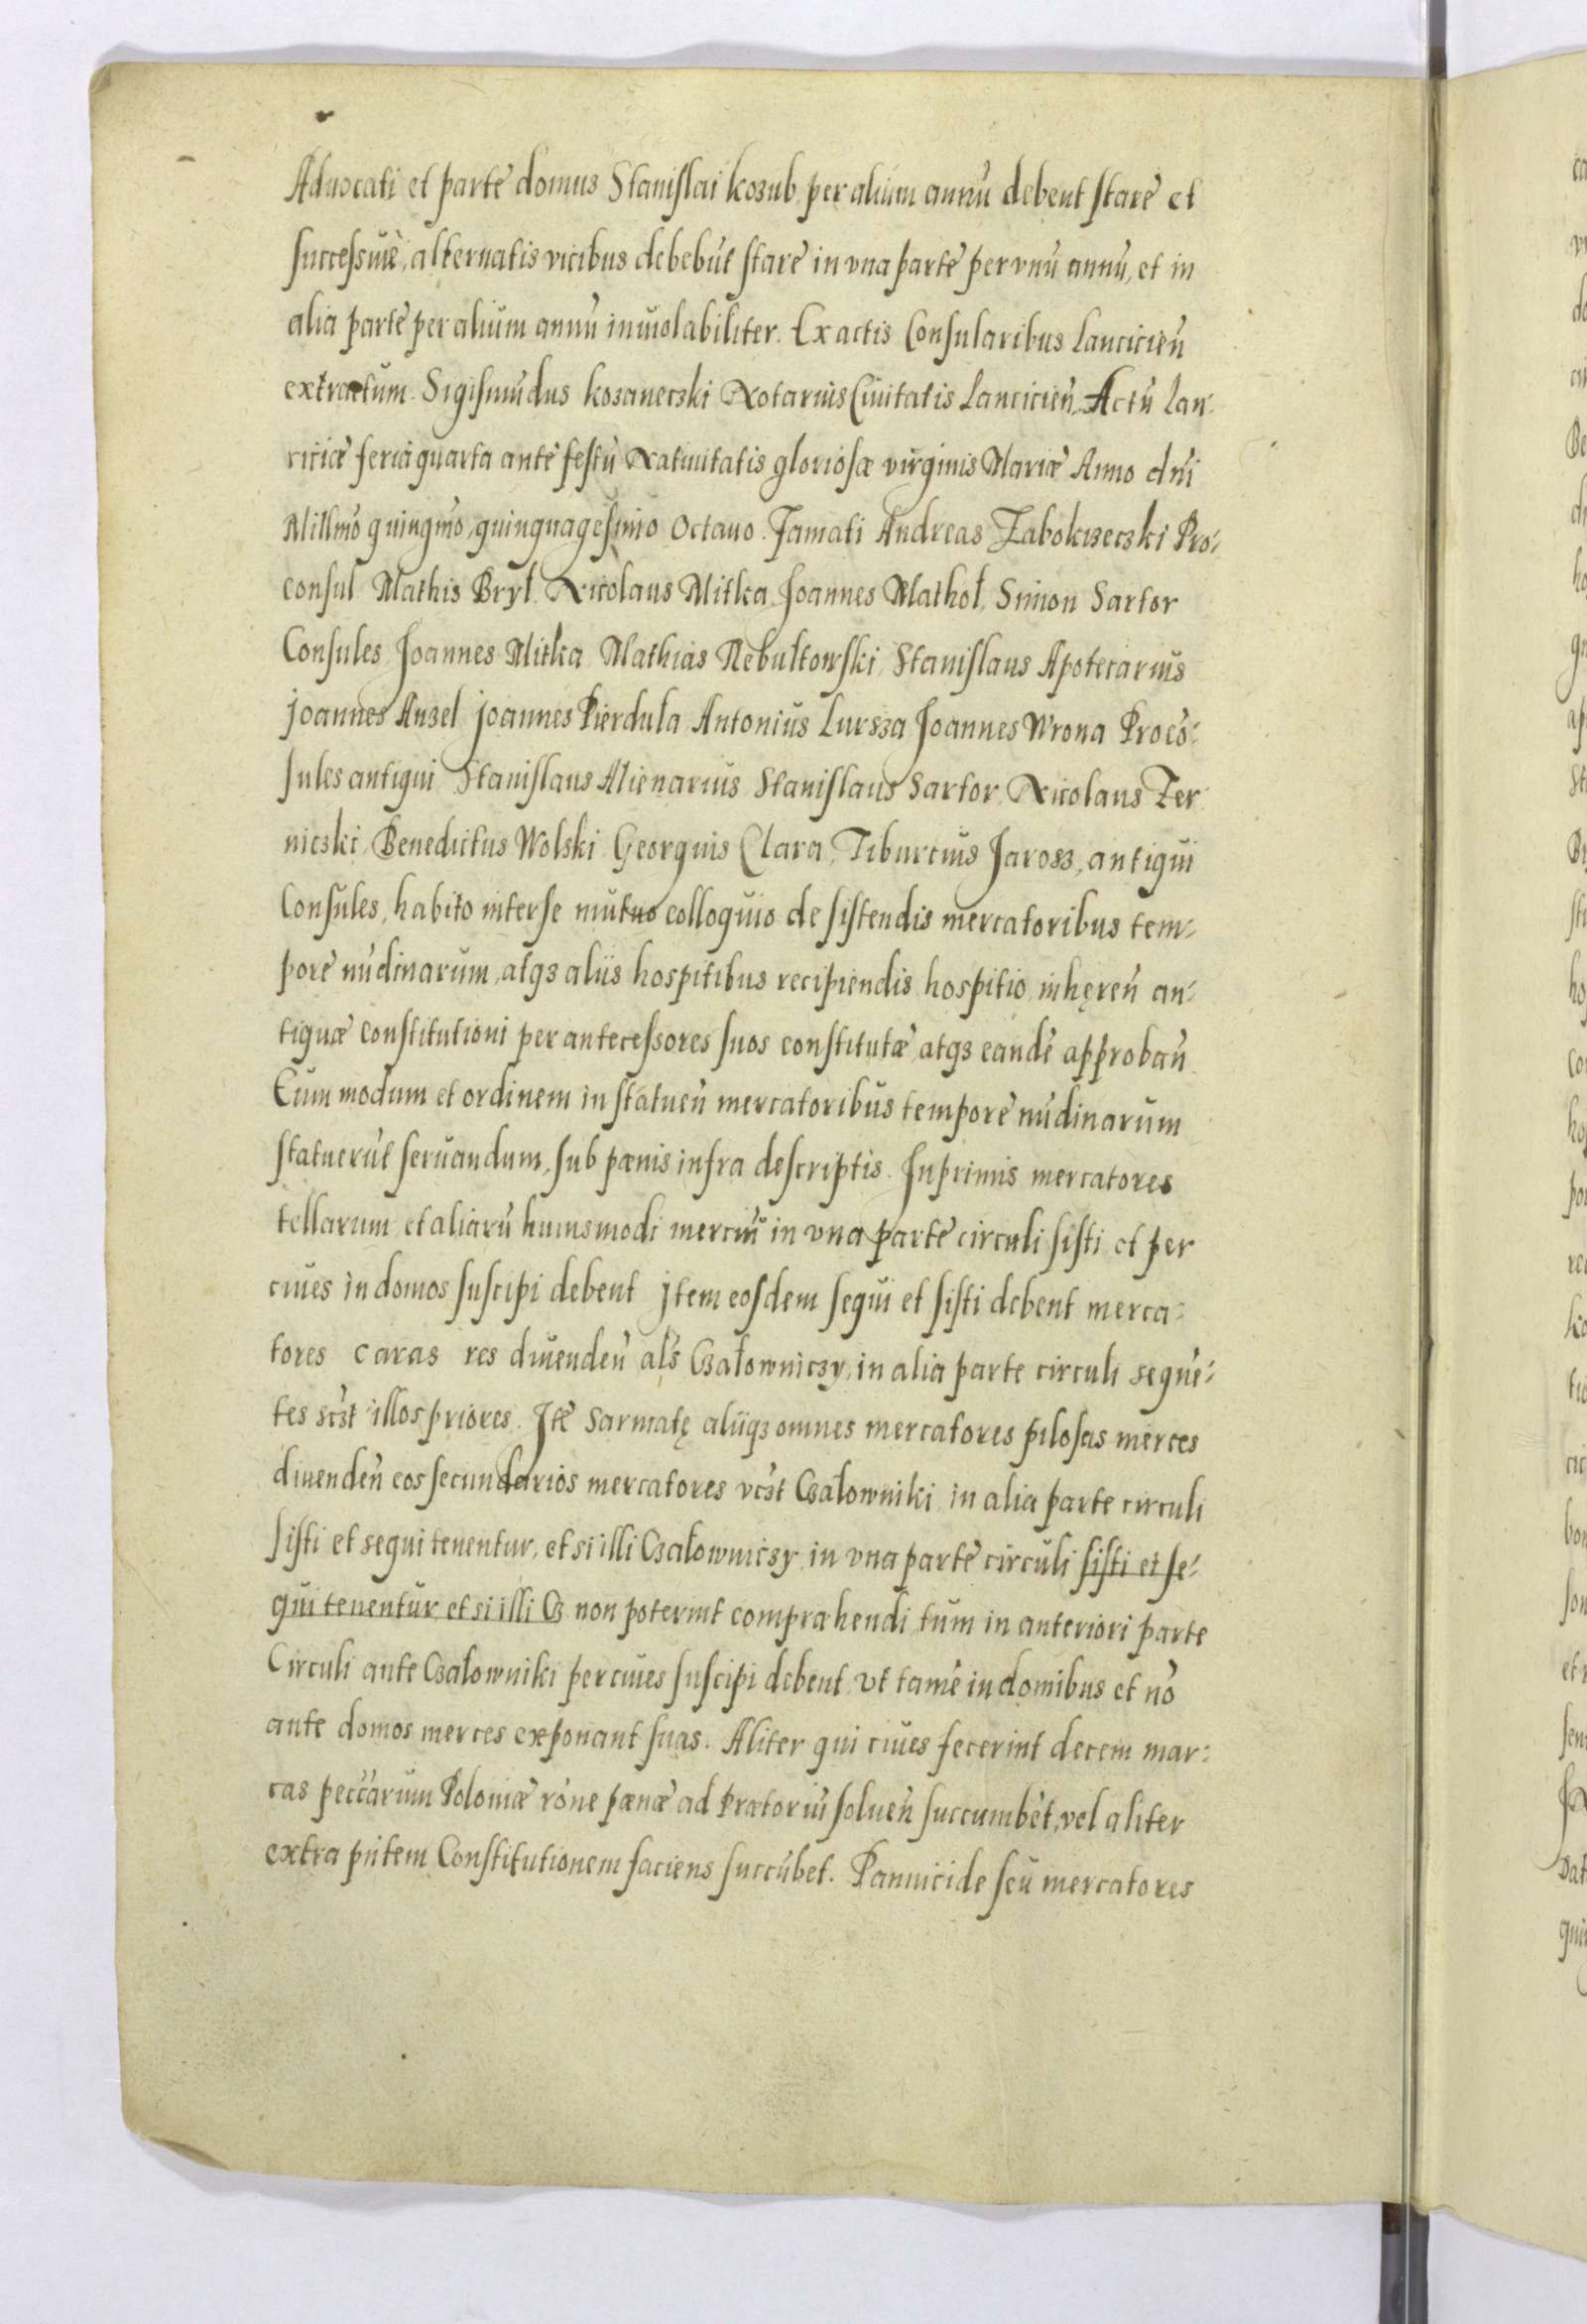 Aduocati et parte domus Stanislai kozub per alium annū debent stare et
successiuè, alternatis vicibus debebūt stare in vna parte per vnū annū, et in
alia parte per alium annū inuiolabiliter. Ex actis Consularibus Lancicieñ
extractum. Sigismūdus kozaneczki Notarius Ciuitatis Lancicieñ. Actū Lan-
ciciæ feria quarta ante festū Natiuitatis gloriosæ virginis Mariæ Anno dñi
Millm̄o quingm̄o, quinquagesimo Octauo. Famati Andreas Zabokrzeczki Pro-
consul Mathis Bryl. Nicolaus Mitka Joannes Mathol, Simon Sartor
Consules Joannes Mitka Mathias Nebultowski, Stanislaus Apotecarius
Joannes Anzel Joannes Pierdula Antonius Lursza Joannes Wrona Procō-
sules antiqui Stanislaus Alienarius Stanislaus Sartor Nicolaus Zer-
niczki Benedictus Wolski Georgius Clara, Tiburcius Jarosz, antiqui
Consules, habito inter se mutuo colloquio de sistendis mercatoribus tem-
pore nūdinarum, atqз aliis hospitibus recipiendis hospitio inhęreñ an-
tiquæ constitutioni per antecessores suos constitutæ atqз eandē approbañ
Eum modum et ordinem in statueñ mercatoribus tempore nūdinarum
statuerūt seruandum, sub pœnis infra descriptis. Inprimis mercatores
tellarum et aliarū huiusmodi merciū in vna parte circuli sisti et per
ciues in domos suscipi debent Item eosdem sequi et sisti debent merca-
tores caras res diuendeñ als Czałowniczy, in alia parte circuli seque-
tes sczt illos priores. Itē Sarmatę aliiqз omnes mercatores pilosas merces
diuendeñ eos secundarios mercatores vczt Czałowniki in alia parte circuli
sisti et sequi tenentur, et si illi Czałowniczy in vna parte circuli sisti et se-
qui tenentur, et si illi Cz non poterint comprahendi tum in anteriori parte
Circuli ante Czałowniki per ciues suscipi debent vt tamē in domibus et nō
ante domos merces exponant suas. Aliter qui ciues fecerint decem mar-
cas peccarum Poloniæ rōne pœnæ ad Prætoriū solueñ succumbēt, vel aliter
extra pn̄tem Constitutionem faciens succūbet. Pannicide seu mercatores